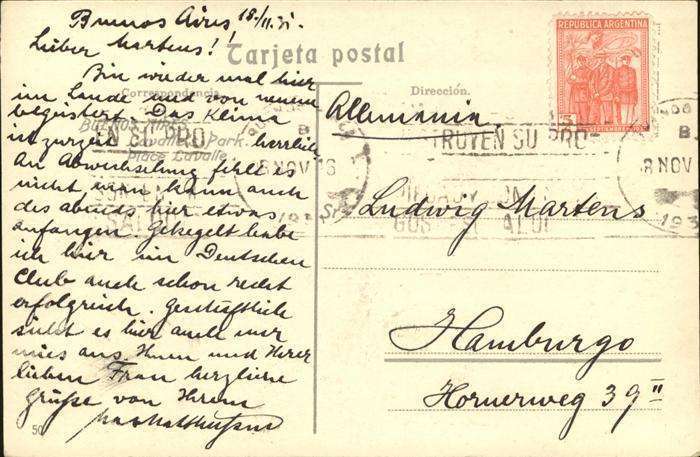 Buenos Aires 18./11.31.
Lieber Martens!!
Tarjeta postal
Correspondencia
Dirección.
Bin wieder mal hier
im Lande und von neuem
begeistert. Das Klima
ist zurzeit herrlich
An Abwechselung fehlt es
nicht, man kann auch
des abends hier etwas
anfangen. Gekegelt habe
ich hier im Deutschen
Club auch schon recht
erfolgreich. Geschäftlich
sieht es hier auch nur
mies aus. Ihnen und Ihrer
lieben Frau herzliche
Grüße von Ihrem
50
Buenos Aires
Lavalle Park
Place Lavalle
REPUBLICA ARGENTINA
Allemania.
TRUYEN SU PRO
8 NOV 16
8 NOV
B
193
Sr.
Ludwig Martens
Hamburgo
Hornerweg 39 II